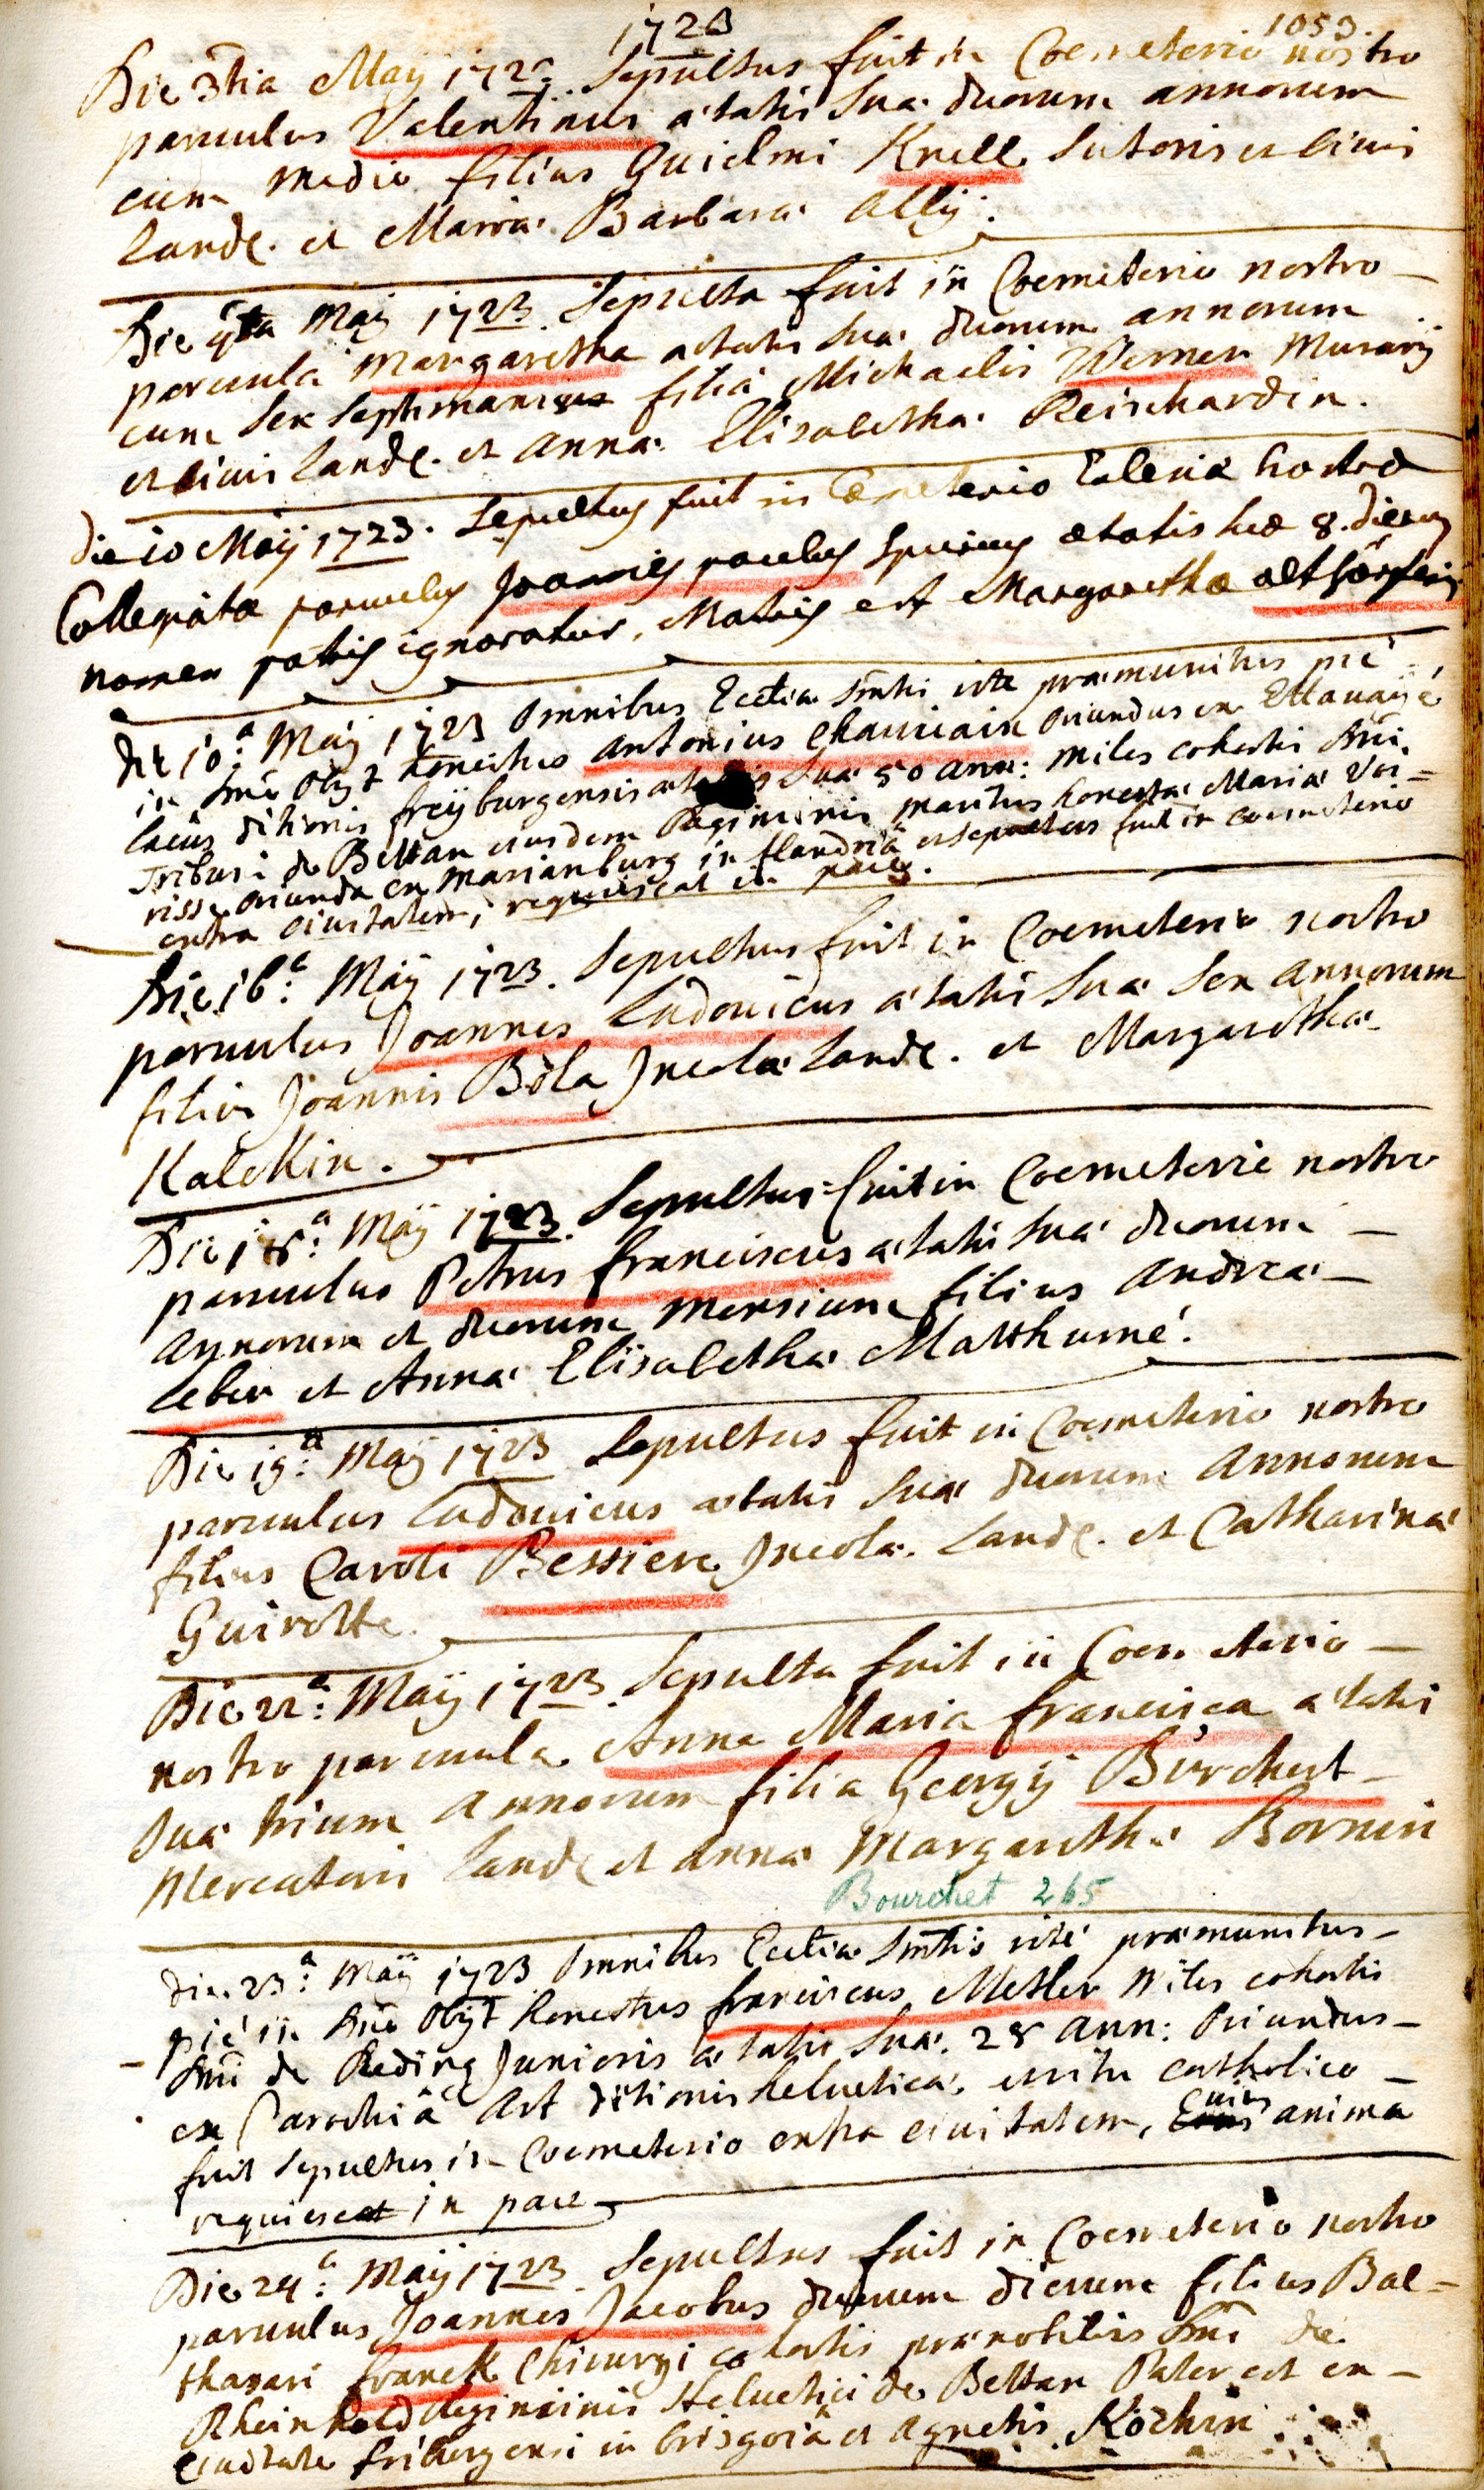 1723
1053.
Die 3tia Maÿ 172 . Sepultus fuit in Coemeterio nostro
parvulus Valentinus ætatis Suæ duorum annorum
cum medio filius Guielmi Knell Sutoris et civis
Land. et Mariæ Barbaræ Allÿ.
Die 4ta Maÿ 1723. Sepulta fuit in Coemeterio nostro –
parvula Margaretha ætatis suæ duorum annorum
cum Sex Septimanis filia Michaelis Werner Murarÿ
et civis Land. et Annæ Elisabethæ Reischardin.
die 10 Maÿ 1723. Sepultus fuit in Cœmeterio Ecclesiæ nostræ
Collegiatæ parvulus Joannes paulus Spurius ætatis suæ 8. dierum
nomen patris ignoratur, Matris est Margarethæ
Die 10.a Maÿ 1723 Omnibus Eccliæ Smtis rite præmunitus piè
in Dno Obÿt honestus Antonius Chauviain Oriundus ex Ettavaÿé
lacûs ditionis freÿburgensis ætatis Suæ 50 ann: Miles cohortis Dni
Tribuni de Bettan eiusdem Regiminis maritus honestæ Mariæ Voi=
risse oriundæ ex Marianburg in flandriâ et sepultus fuit in coemeterio
extra Civitatem, requiescat in pace.
Die 16.a Maÿ 1723. Sepultus fuit in Coemeterio nostro
parvulus Joannes Ludovicus ætatis Suæ Sex annorum
filius Joannis Böla Incolæ Land. et Margarethæ
Kalckin.
Die 18.a Maÿ 1723. Sepultus fuit in Coemeterio nostro
parvulus Petrus franciscus ætatis suæ duorum –
Annorum et duorum Mensium filius Andreæ –
Leber et Annæ Elisabethæ Matthumé.
Die 19.a Maÿ 1723 Sepultus fuit in Coemeterio nostro
parvulus Ludovicus ætatis Suæ duorum Annorum
filius Caroli Bessiere Incolæ Land. et Catharinæ
Guirotte.
Die 22.a Maÿ 1723 Sepulta fuit in Coemeterio –
nostro parvula Anna Maria francisca ætatis
Suæ trium Annorum filia Georgÿ Bürckert –
Mercatoris Land. et Annæ Margarethæ Bornin
Bourchet 265
Die 23.a Maÿ 1723 Omnibus Eccliæ Smtis ritè præmunitus –
piè in Dno Obÿt honestus franciscus Metler Miles cohortis
– Dni de Reding Junioris ætatis Suæ 28 Ann: Oriundus –
ex Parochiâ Art ditionis helveticæ, et ritu catholico –
fuit Sepultus in Coemeterio extra civitatem, Cuius anima
requiescat in pace
Die 24.a Maÿ 1723. Sepultus fuit in Coemeterio nostro
parvulus Joannes Jacobus duorum dierum filius Bal=
thasari franck Chirurgi cohortis prænobilis Dni de
Rheinhold Regiminis Helvetici de Bettan Pater est ex –
civitate fribergensi in brisgoiâ et Agnetis Köchin